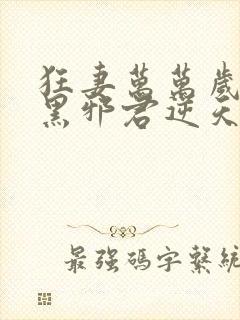 狂妻萬萬歲
黑邪君逆天
最強碼字繫統